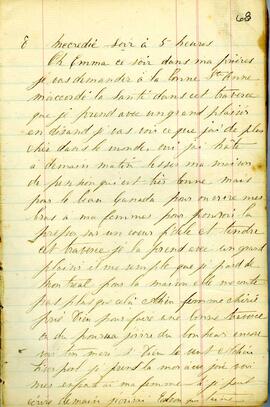 63
E mecredie soir à 5 heures
Oh Emma ce soir dans ma prières
je vas demander à la bonne Ste Anne
m'accordé la santé dans cet traverce
que je prend avec un grand plaisir
en disand je vas voir ce que j'ai de plus
chér dans le monde oui j'ai hate
a demain matin lesser ma maison
de pension qui est très bonne mais
pour le bon Canada pour ouvrire mes
bras a ma femmes pour pouvoir la
presser sur un coeur fidèle et tendre
cet traverce je la prend avec un grand
plaisir il me semple que je pard de
Montréal pour la maison elle me conte
pas plus que cela femme chérie
prie Dieu pour faire une bonne traverce
ou du pourra jouire du bonheur encore
sur ton mers si bien le veut
Liverpool je prend la mer au joie voir
mes enfants a ma femme si je peut
écrire demain